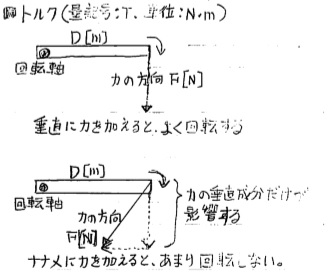 トルク(量記号:T、単位:N·m)
D[m]
回転軸
力の方向 F[N]
垂直に力を加えると、よく回転する
D[m]
回転軸
力の方向
F[N]
力の垂直成分だけが
影響する
ナナメに力を加えると、あまり回転しない。